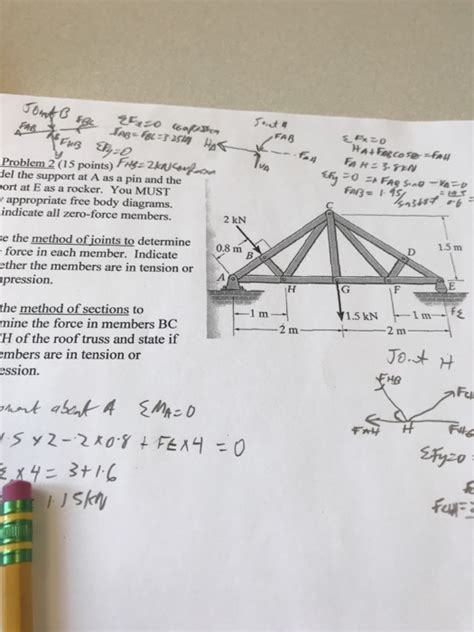 Joint B
ΣFx=0 compression
FAB = FBC = 3.25kN
FAB
FBC
FHB
ΣFy=0
FHB = 2kN compression
Joint A
FAB
HA
FAH
VA
ΣFx=0
HA+FABcosθ=FAH
FAH = 3.8kN
ΣFy=0 => FAB sinθ - VA=0
Problem 2 (15 points)
del the support at A as a pin and the
port at E as a rocker. You MUST
appropriate free body diagrams.
indicate all zero-force members.
se the method of joints to determine
force in each member. Indicate
ether the members are in tension or
mpression.
the method of sections to
mine the force in members BC
H of the roof truss and state if
embers are in tension or
ession.
2 kN
C
0.8 m
B
D
1.5 m
A
H
G
F
E
1 m
1.5 kN
1 m
FE
2 m
2 m
Joint H
FHB
FAH
H
ΣFy=0
about A ΣMA=0
1.5 x 2 - 2 x 0.8 + FE x 4 = 0
x 4 = 3+1.6
1.15kN